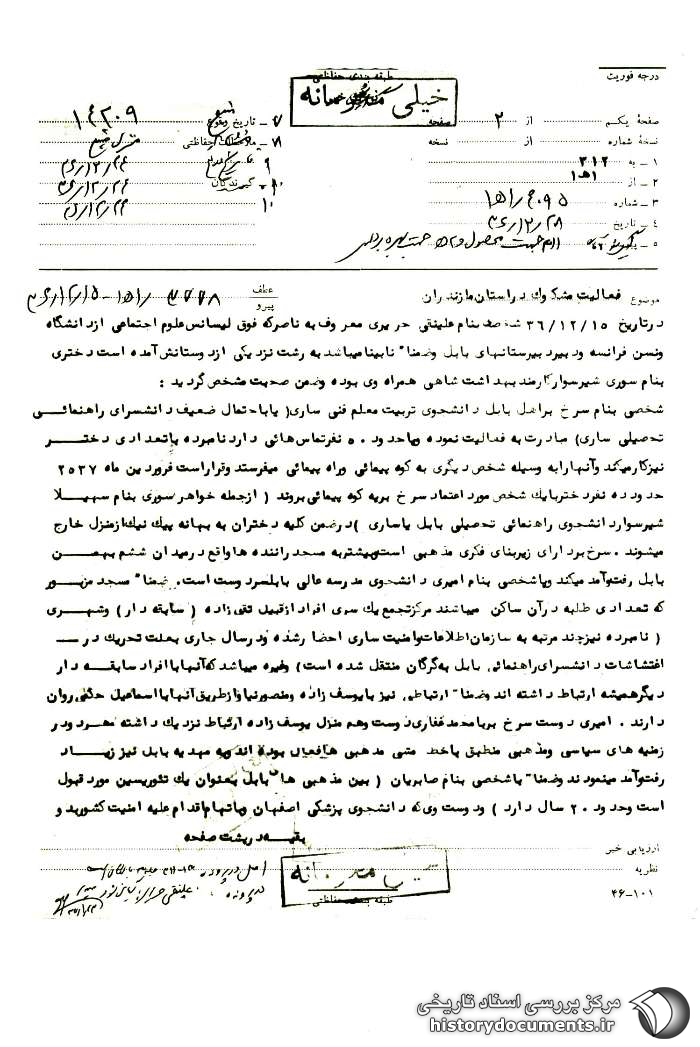 درجه فوریت
طبقه بندی حفاظتی
خیلی محرمانه
صفحه یکم از ۲ صفحه
نسخه شماره از نسخه
۱ - به ۳۱۲
۲ - از ۱ﻫ۱
۳ - شماره
۴ - تاریخ
۵ -
۷ - تاریخ وقوع
۸ - ملاحظات حفاظتی
۹
گیرندگان
موضوع فعالیت مشکوك در استان مازندران
عطف
پیرو
در تاریخ ۳۶/۱۲/۱۵ شخصی بنام علینقی حریری معروف به ناصر که فوق لیسانس علوم اجتماعی از دانشگاه
ونسن فرانسه و دبیر دبیرستانهای بابل وضمنا" نابینا میباشد به رشت نزد یکی از دوستانش آمده است دختری
بنام سوری شیرسوار کارمند بهداشت شاهی همراه وی بوده وضمن صحبت مشخص گردید :
شخصی بنام سرخ بر اهل بابل دانشجوی تربیت معلم فنی ساری( یا باحتمال ضعیف دانشسرای راهنمائی
تحصیلی ساری) مبادرت به فعالیت نموده و با حدود ۵۰ نفر تماس هائی دارد نامبرده با تعدادی دختر
نیز کار میکند و آنها را به وسیله شخص دیگری به کوه پیمائی و راه پیمائی میفرستد و قرار است فروردین ماه ۲۵۳۷
حدود ده نفر دختر با یك شخص مورد اعتماد سرخ بر به کوه پیمائی بروند ( از جمله خواهر سوری بنام سهیلا
شیرسوار دانشجوی راهنمائی تحصیلی بابل یا ساری )در ضمن کلیه دختران به بهانه پیك نیك از منزل خارج
میشوند . سرخ بر دارای زیربنای فکری مذهبی است و بیشتر به مسجد راننده ها واقع در میدان ششم بهمن
بابل رفت و آمد میکند و با شخصی بنام امیری دانشجوی مدرسه عالی بابلسر دوست است. ضمنا" مسجد مزبور
که تعدادی طلبه در آن ساکن میباشند مرکز تجمع یك سری افراد از قبیل تقی زاده ( سابقه دار ) و شهری
( نامبرده نیز چند مرتبه به سازمان اطلاعات و امنیت ساری احضار شده و در سال جاری بعلت تحریك در
اغتشاشات دانشسرای راهنمائی بابل به گرگان منتقل شده است) وغیره میباشد که آنها با افراد سابقه دار
دیگر همیشه ارتباط داشته اند وضمنا" ارتباطی نیز با یوسف زاده و منصورنیا و از طریق آنها با اسماعیل
دارند . امیری دوست سرخ بر با محمد غفاری دوست وهم منزل یوسف زاده ارتباط نزدیك داشته و هر دو در
زمینه های سیاسی ومذهبی منطبق با خط مشی مذهبی ها فعال بوده اند و به مهدیه بابل نیز زیاد
رفت و آمد مینمودند وضمنا" با شخصی بنام صابریان ( بین مذهبی ها" بابل بعنوان یك تئوریسین مورد قبول
است و حدود ۲۰ سال دارد ) و دوست وی که دانشجوی پزشکی اصفهان و باتهام اقدام علیه امنیت کشور بد و
بقیه در پشت صفحه
ارزیابی خبر
نظریه
طبقه بندی حفاظتی
۴۶-۱۰۱
مرکز بررسی اسناد تاریخی
historydocuments.ir